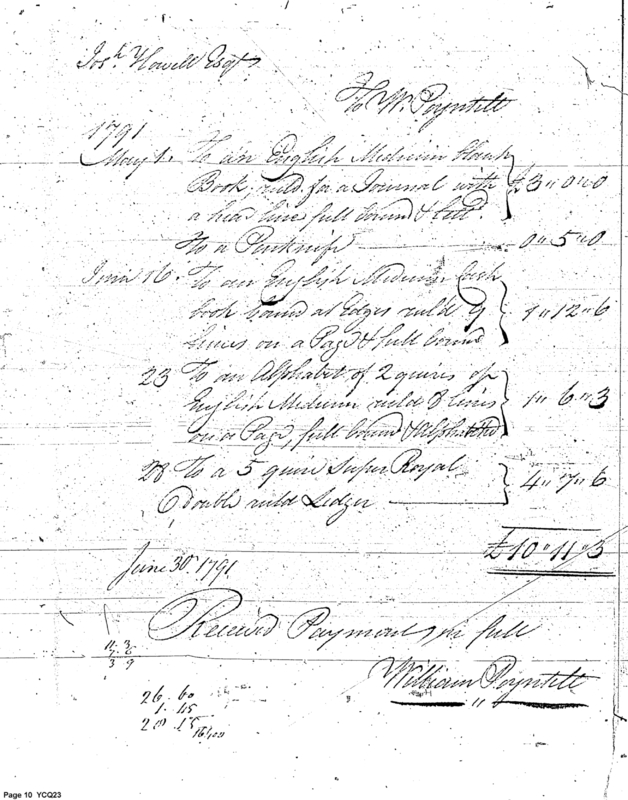 Josh. Howell Esqr.
To Wm. Poyntell
1791
May 1. To an English Medium blank
Book, ruld. for a Journal with £3 " 0 " 0
a head line full bound & lettd.
To a Penknife 0 " 5 " 0
June 16. To an English Medium Cash
book bound at Edges ruld 9 1 " 12 " 6
lines on a Page & full bound
23 To an Alphabet of 2 quires of
English Medium ruld 8 lines 1 " 6 " 3
on a Page, full bound & Alphabeted
28 To a 5 quire Super Royal
double ruld Ledger 4 " 7 " 6
£10 " 11 " 3
June 30. 1791
Received Payment in full
William Poyntell
11. 3
7. 6
3 9
26. 60
1. 15
28 15
16/100
Page 10 YCQ23